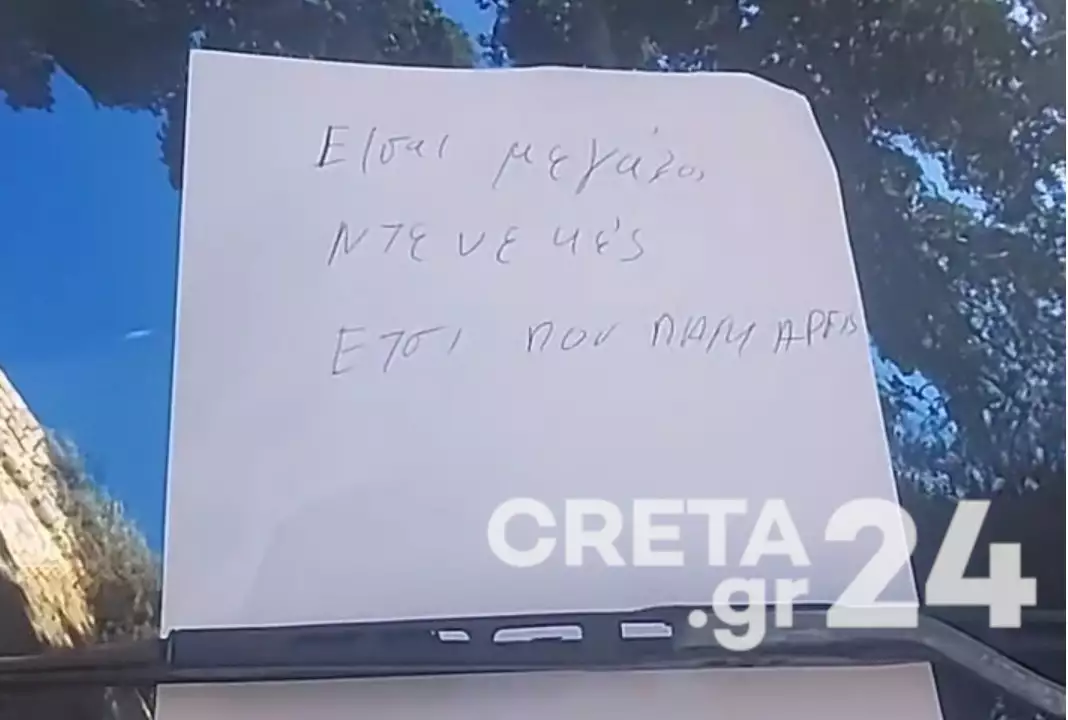 Είσαι μεγάλος
ντενεκές
Ετσι που ΠΑΡΚΑΡΕΙΣ
CRETA 24
.gr